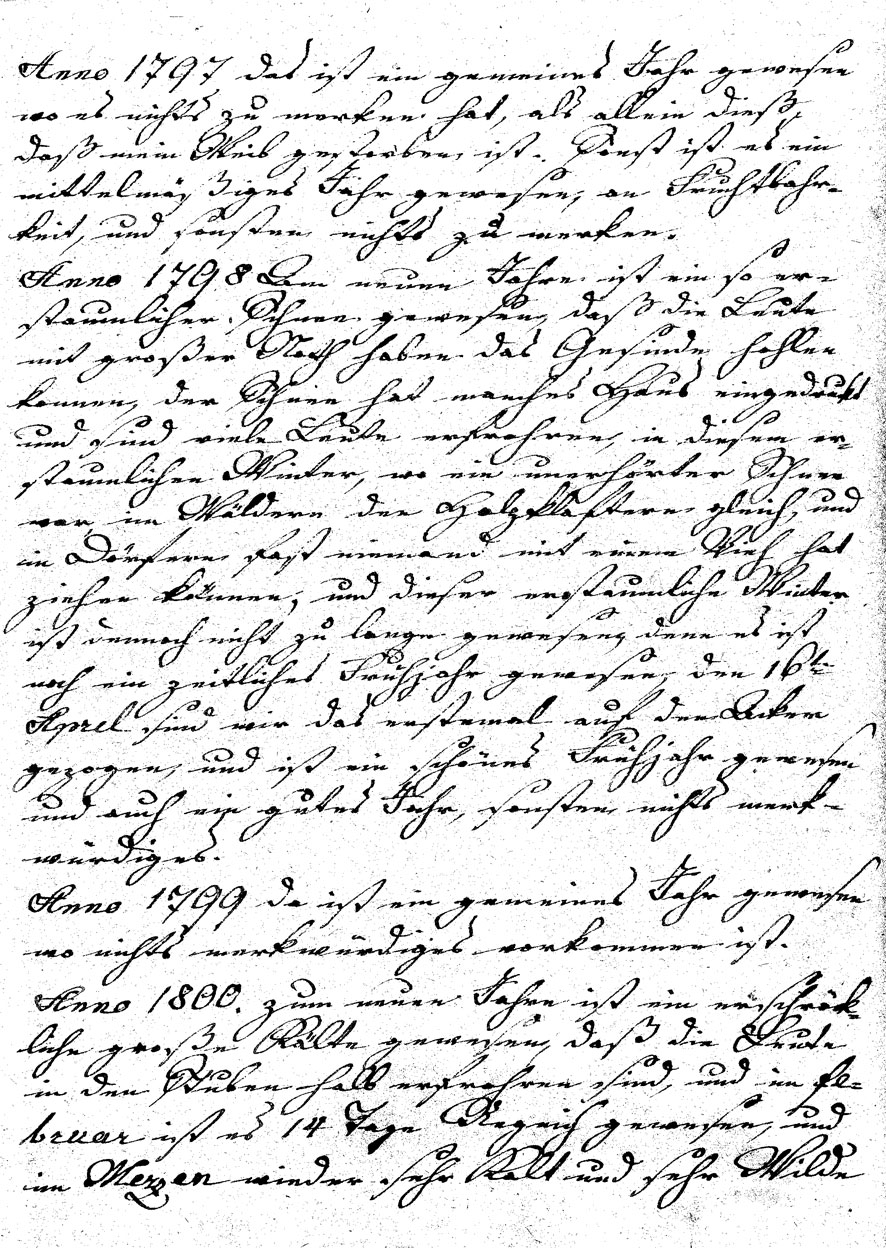 Anno 1797 das ist ein gemeines Jahr gewesen
wo es nichts zu merken hat, als allein dieß,
daß mein Weib gestorben ist. Sonst ist es ein
mittelmäßiges Jahr gewesen, an Fruchtbahr-
keit, und sonsten nichts zu merken.
Anno 1798 Bam neuen Jahre ist ein so er-
staunlicher Schnee gewesen, daß die Leute
mit großer Noth haben das Gesinde hollen
konnen, der Schnee hat manches Haus eingedruckt
und sind viele Leute erfrohren, in diesem er-
staunlichen Winter, wo ein unerhörter Schnee
war, in Wäldern den Holzklaftern gleich, und
in Dörfern fast niemand mit einem Vieh hat
ziehen können, und dieser erstaunliche Winter
ist dennoch nicht zu lange gewesen, denn es ist
noch ein zeitliches Frühjahr gewesen, den 16ten
Aprel sind wir das erstemal auf den Acker
gezogen, und ist ein schönes Frühjahr gewesen
und auch ein gutes Jahr, sonsten nichts merk-
würdiges.
Anno 1799 da ist ein gemeines Jahr gewesen
wo nichts merkwürdiges vorkommen ist.
Anno 1800. zum neuen Jahre ist ein erschröck-
liche große Kälte gewesen, daß die Leute
in den Stuben halb erfrohren sind, und im Fe-
bruar ist es 14 Tage gewesen, und
im Merzen wieder sehr Kalt und sehr Wilde